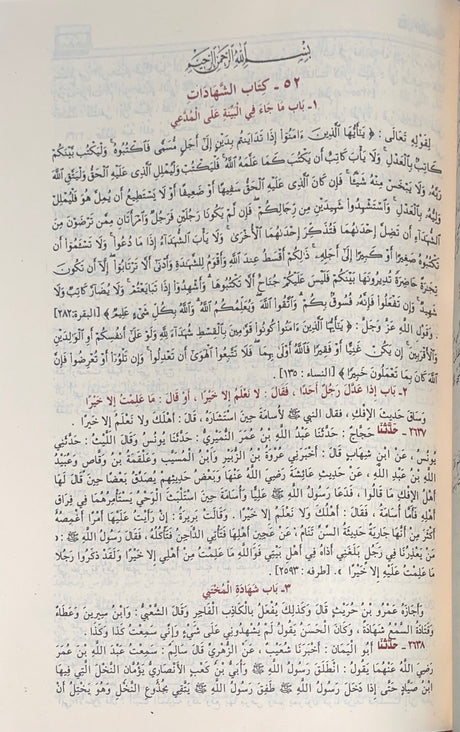 بِسْمِ اللهِ الرَّحْمنِ الرَّحِيمِ
٥٢ - كتاب الشَّهَادَات
١- بَاب مَا جَاءَ فِي الْبَيِّنَةِ عَلَى الْمُدَّعِي
لِقَوْلِهِ تَعَالَى : ﴿ يَتَأَيُّهَا الَّذِينَ ءَامَنُوٓا إِذَا تَدَايَنتُم بِدَيْنٍ إِلَىٰ أَجَلٍ مُّسَمًّى فَاكْتُبُوهُ وَلْيَكْتُب بَّيْنَكُمْ
كَاتِبٌ بِالْعَدْلِ وَلَا يَأْبَ كَاتِبٌ أَن يَكْتُبَ كَمَا عَلَّمَهُ اللَّهُ فَلْيَكْتُبْ وَلْيُمْلِلِ الَّذِى عَلَيْهِ الْحَقُّ وَلْيَتَّقِ اللَّهَ
رَبَّهُ وَلَا يَبْخَسْ مِنْهُ شَيْئًا فَإِن كَانَ الَّذِى عَلَيْهِ الْحَقُّ سَفِيهًا أَوْ ضَعِيفًا أَوْ لَا يَسْتَطِيعُ أَن يُمِلَّ هُوَ فَلْيُمْلِلْ
وَلِيُّهُ بِالْعَدْلِ وَاسْتَشْهِدُوا شَهِيدَيْنِ مِن رِّجَالِكُمْ فَإِن لَّمْ يَكُونَا رَجُلَيْنِ فَرَجُلٌ وَامْرَأَتَانِ مِمَّن تَرْضَوْنَ مِنَ
الشُّهَدَاءِ أَن تَضِلَّ إِحْدَاهُمَا فَتُذَكِّرَ إِحْدَاهُمَا الْأُخْرَىٰ وَلَا يَأْبَ الشُّهَدَاءُ إِذَا مَا دُعُوا وَلَا تَسْئَمُوا أَن
تَكْتُبُوهُ صَغِيرًا أَوْ كَبِيرًا إِلَىٰ أَجَلِهِ ذَٰلِكُمْ أَقْسَطُ عِندَ اللَّهِ وَأَقْوَمُ لِلشَّهَادَةِ وَأَدْنَىٰ أَلَّا تَرْتَابُوا إِلَّا أَن تَكُونَ
تِجَارَةً حَاضِرَةً تُدِيرُونَهَا بَيْنَكُمْ فَلَيْسَ عَلَيْكُمْ جُنَاحٌ أَلَّا تَكْتُبُوهَا وَأَشْهِدُوا إِذَا تَبَايَعْتُمْ وَلَا يُضَارَّ كَاتِبٌ وَلَا
شَهِيدٌ وَإِن تَفْعَلُوا فَإِنَّهُ فُسُوقٌ بِكُمْ وَاتَّقُوا اللَّهَ وَيُعَلِّمُكُمُ اللَّهُ وَاللَّهُ بِكُلِّ شَىْءٍ عَلِيمٌ ﴾ [البقرة:٢٨٢]
. وَقَوْلِ اللهِ عَزَّ وَجَلَّ : ﴿ يَتَأَيُّهَا الَّذِينَ ءَامَنُوا كُونُوا قَوَّامِينَ بِالْقِسْطِ شُهَدَاءَ لِلَّهِ وَلَوْ عَلَىٰ أَنفُسِكُمْ أَوِ الْوَالِدَيْنِ
وَالْأَقْرَبِينَ إِن يَكُنْ غَنِيًّا أَوْ فَقِيرًا فَاللَّهُ أَوْلَىٰ بِهِمَا فَلَا تَتَّبِعُوا الْهَوَىٰ أَن تَعْدِلُوا وَإِن تَلْوُوا أَوْ تُعْرِضُوا فَإِنَّ
اللَّهَ كَانَ بِمَا تَعْمَلُونَ خَبِيرًا ﴾ [النساء : ١٣٥] .
٢- بَاب إِذَا عَدَّلَ رَجُلٌ أَحَدًا ، فَقَالَ : لا نَعْلَمُ إِلا خَيْرًا ، أَوْ قَالَ : مَا عَلِمْتُ إِلا خَيْرًا
وَسَاقَ حَدِيثَ الإِفْكِ ، فَقَالَ النبي ﷺ لأُسَامَةَ حِينَ اسْتَشَارَهُ ، قَالَ : أَهْلُكَ وَلا نَعْلَمُ إِلا خَيْرًا .
٢٦٣٧ - حَدَّثَنَا حَجَّاجٌ : حَدَّثَنَا عَبْدُ اللَّهِ بْنُ عُمَرَ النُّمَيْرِيُّ : حَدَّثَنَا يُونُسُ وَقَالَ اللَّيْثُ : حَدَّثَنِي
يُونُسُ، عَنِ ابْنِ شِهَابٍ قَالَ : أَخْبَرَنِي عُرْوَةُ بْنُ الزُّبَيْرِ وَابْنُ الْمُسَيَّبِ وَعَلْقَمَةُ بْنُ وَقَّاصٍ وَعُبَيْدُ
اللَّهِ بْنُ عَبْدِ اللَّهِ ، عَنْ حَدِيثِ عَائِشَةَ رَضِيَ اللَّهُ عَنْهَا وَبَعْضُ حَدِيثِهِمْ يُصَدِّقُ بَعْضًا حِينَ قَالَ لَهَا
أَهْلُ الإِفْكِ مَا قَالُوا ، فَدَعَا رَسُولُ اللَّهِ ﷺ عَلِيًّا وَأُسَامَةَ حِينَ اسْتَلْبَثَ الْوَحْيُ يَسْتَأْمِرُهُمَا فِي فِرَاقِ
أَهْلِهِ فَأَمَّا أُسَامَةُ ، فَقَالَ : أَهْلُكَ وَلا نَعْلَمُ إِلا خَيْرًا . وَقَالَتْ بَرِيرَةُ : إِنْ رَأَيْتُ عَلَيْهَا أَمْرًا أَغْمِصُهُ
أَكْثَرَ مِنْ أَنَّهَا جَارِيَةٌ حَدِيثَةُ السِّنِّ تَنَامُ ، عَنْ عَجِينِ أَهْلِهَا فَتَأْتِي الدَّاجِنُ فَتَأْكُلُهُ ، فَقَالَ رَسُولُ اللَّهِ ﷺ : «
مَنْ يَعْذِرُنَا فِي رَجُلٍ بَلَغَنِي أَذَاهُ فِي أَهْلِ بَيْتِي فَوَاللَّهِ مَا عَلِمْتُ مِنْ أَهْلِي إِلا خَيْرًا وَلَقَدْ ذَكَرُوا رَجُلًا
مَا عَلِمْتُ عَلَيْهِ إِلا خَيْرًا » . [طرفه : ٢٥٩٣] .
٣- بَاب شَهَادَةِ الْمُخْتَبِي
وَأَجَازَهُ عَمْرُو بْنُ حُرَيْثٍ قَالَ وَكَذَلِكَ يُفْعَلُ بِالْكَاذِبِ الْفَاجِرِ وَقَالَ الشَّعْبِيُّ : وَابْنُ سِيرِينَ وَعَطَاءٌ
وَقَتَادَةُ السَّمْعُ شَهَادَةٌ ، وَكَانَ الْحَسَنُ يَقُولُ لَمْ يُشْهِدُونِي عَلَى شَيْءٍ وَإِنِّي سَمِعْتُ كَذَا وَكَذَا .
٢٦٣٨ - حَدَّثَنَا أَبُو الْيَمَانِ : أَخْبَرَنَا شُعَيْبٌ ، عَنِ الزُّهْرِيِّ قَالَ سَالِمٌ : سَمِعْتُ عَبْدَ اللَّهِ بْنَ عُمَرَ
رضي اللَّهُ عَنْهُمَا يَقُولُ : انْطَلَقَ رَسُولُ اللَّهِ ﷺ وَأُبَيُّ بْنُ كَعْبٍ الأَنْصَارِيُّ يَؤُمَّانِ النَّخْلَ الَّتِي فِيهَا
ابْنُ صَيَّادٍ حَتَّى إِذَا دَخَلَ رَسُولُ اللَّهِ ﷺ طَفِقَ رَسُولُ اللَّهِ ﷺ يَتَّقِي بِجُذُوعِ النَّخْلِ وَهُوَ يَخْتِلُ أَنْ